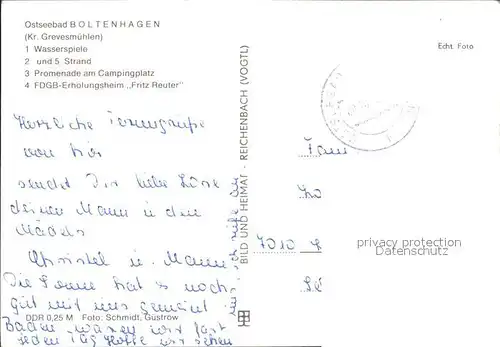 Ostseebad BOLTENHAGEN
(Kr. Grevesmühlen)
1 Wasserspiele
2 und 5 Strand
3 Promenade am Campingplatz
4 FDGB-Erholungsheim „Fritz Reuter"
Echt Foto
Herzliche
von hier
sendet Dir liebe
deinen Mann u den
Mädels
Christel u. Mann
Die Sonne hat es noch
gut mit uns gemeint
Baden waren wir fast
jeden Tag Hoffe wir sehen
BILD UND HEIMAT · REICHENBACH (VOGTL)
Fam
7010
privacy protection
Datenschutz
DDR 0,25 M Foto: Schmidt, Güstrow